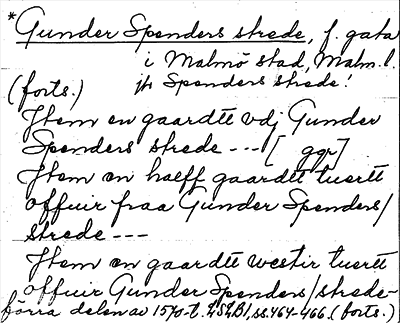 *Gunder Spenders strede, f. gata
i Malmö stad, Malm. l.
(forts.) jfr Spenders strede!
Jtem en gaardtt vdj Gunder
Spenders strede --- [ ggr]
Jtem en halff gaardtt tuertt
offuir fraa Gunder Spenders/
strede ---
Jtem en gaardtt westir tuertt
offuir Gunder Spenders/strede-
förra delen av 1570-t. ss. 464-466. (forts.)